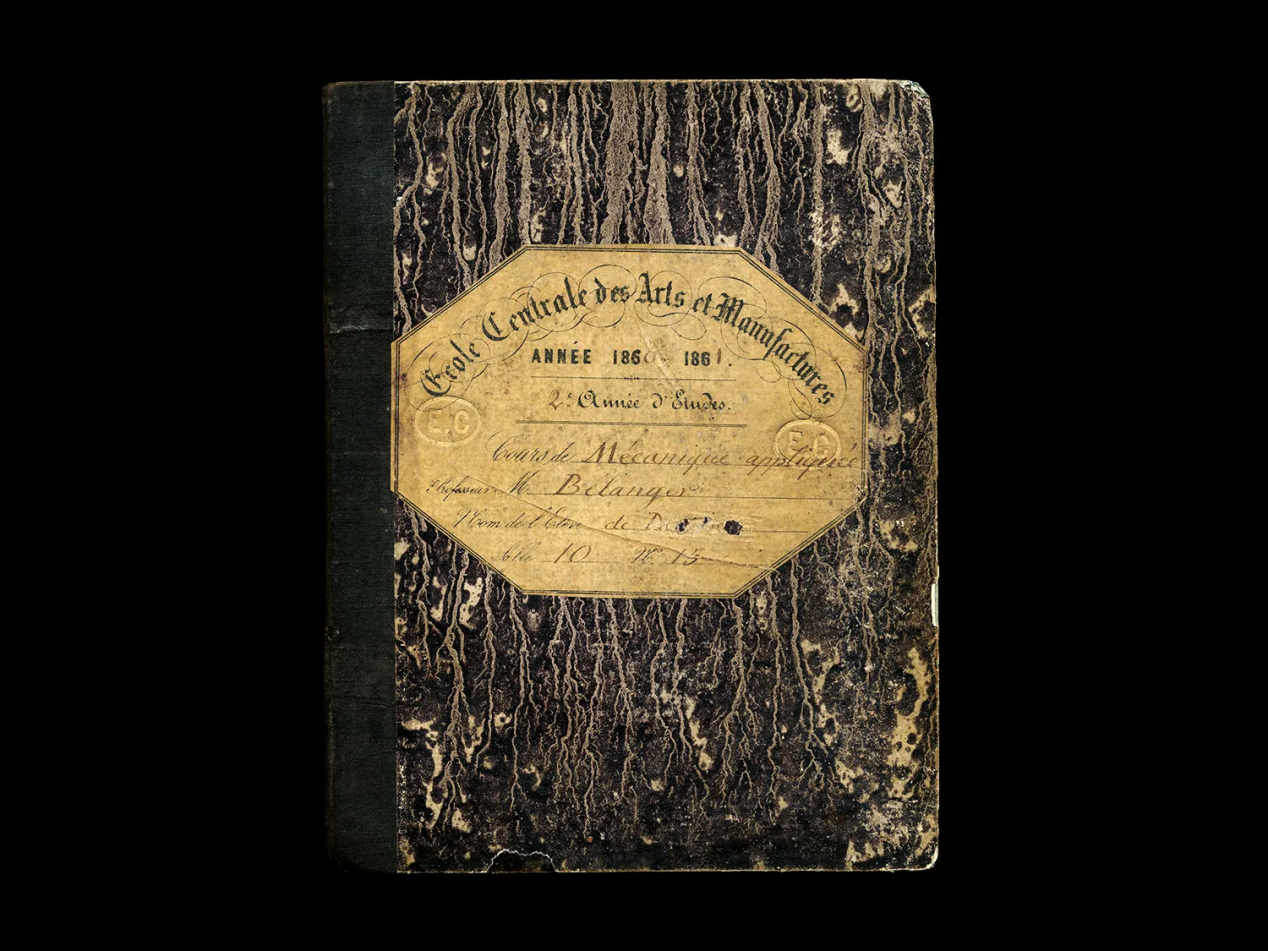 Ecole Centrale des Arts et Manufactures
ANNÉE 1860 1861.
2e Année d'Etudes.
E.C
E.C
Cours de Mécanique appliquée
Professeur M. Bélanger
Nom de l'Elève de
Salle 10 No 15